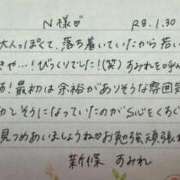 N様♡
R8.1.30
大人っぽくて、落ち着いていたから若い
きや…!びっくりでした!(笑)すみれを呼ん
!最初は余裕がありそうな雰囲気
てそうになっていたのがSっ
見つめあいましょうね♡お勉強頑張
新條 すみれ